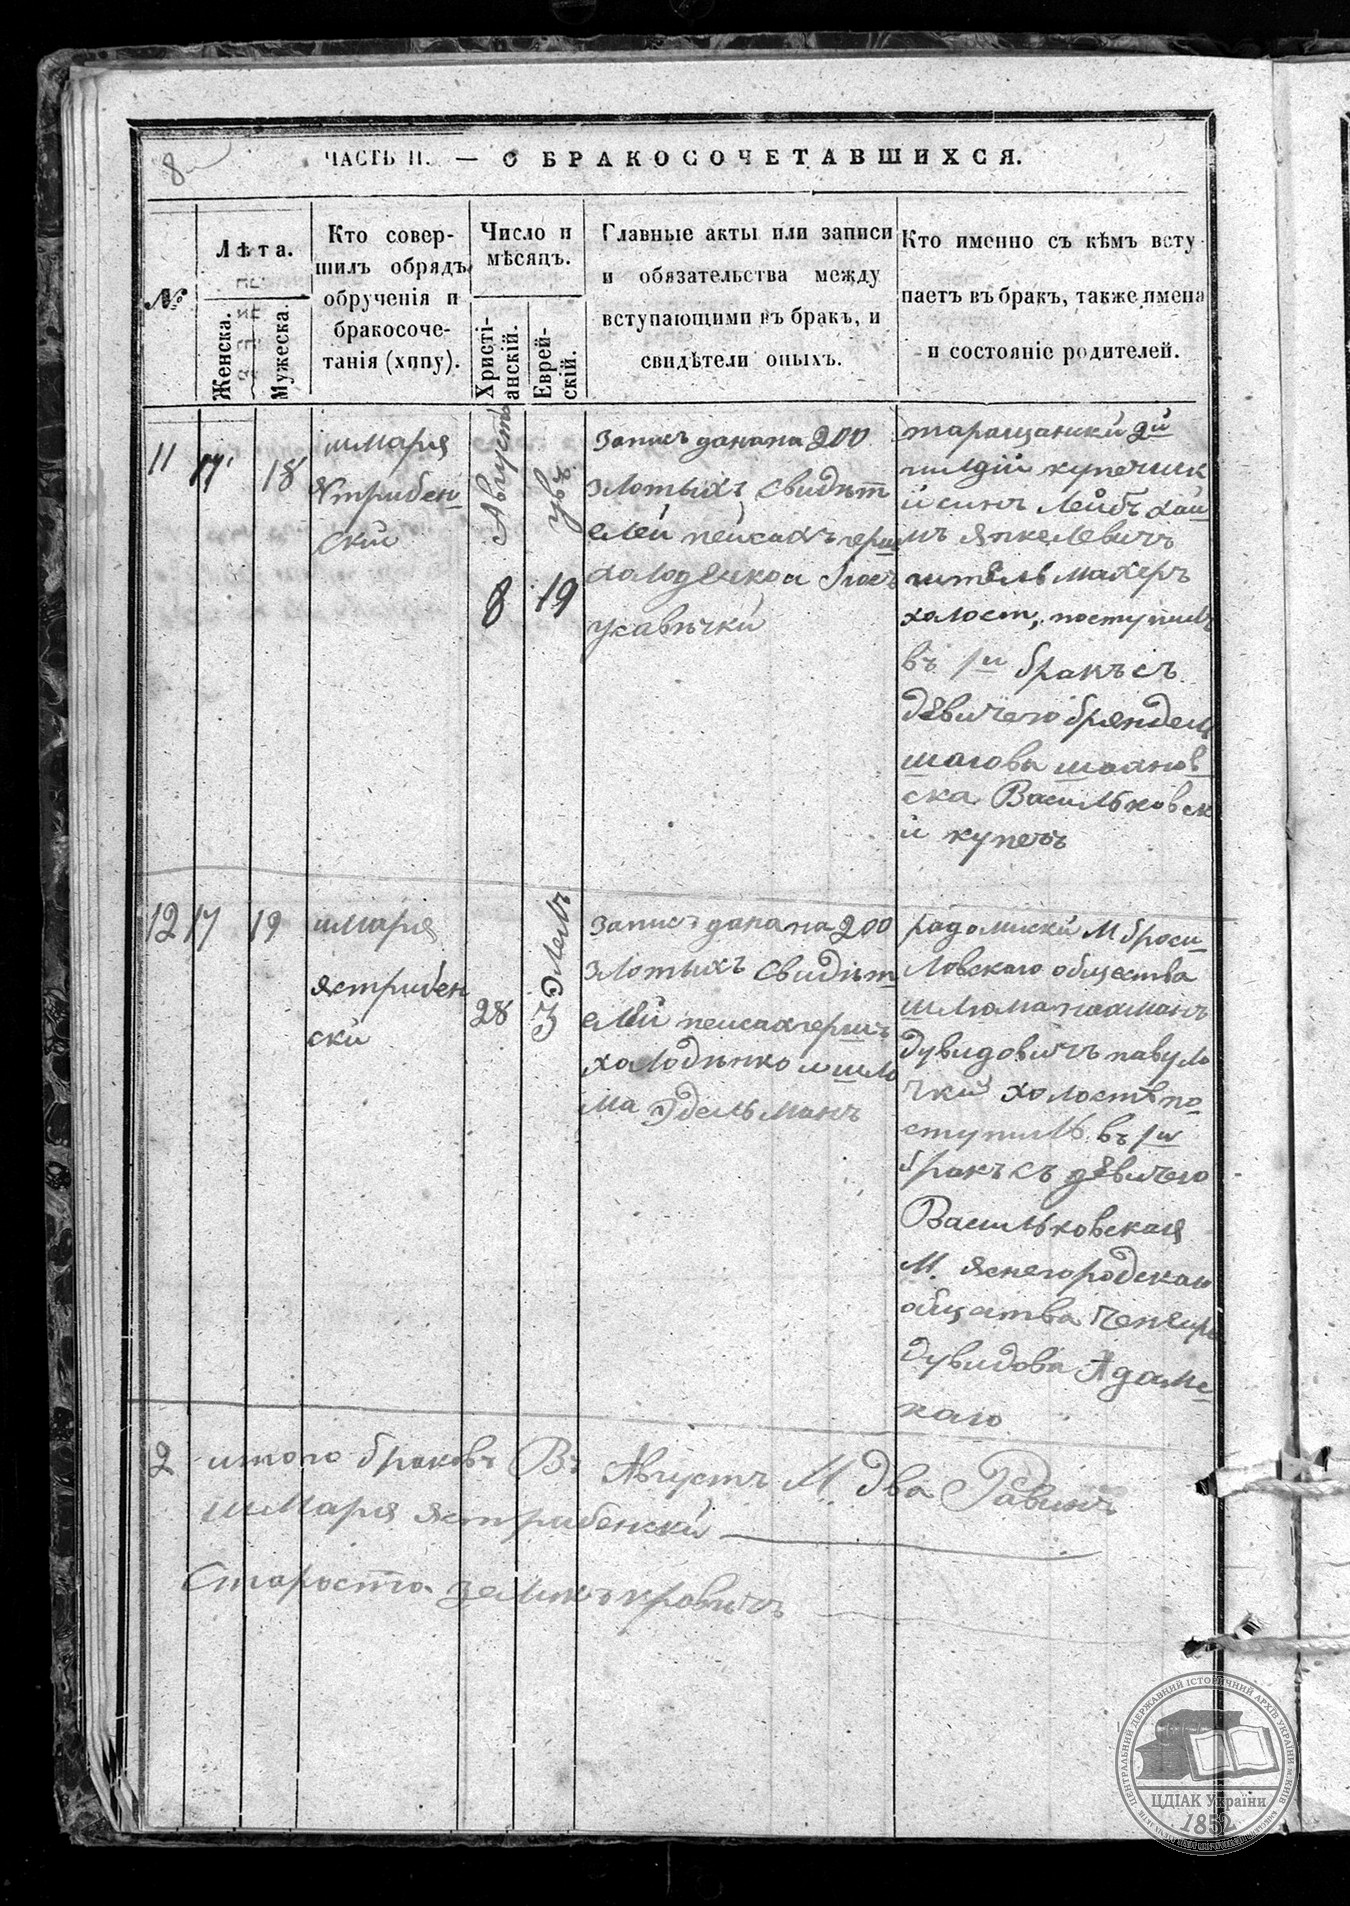 8
ЧАСТЬ II. — О БРАКОСОЧЕТАВШИХСЯ.
№
Лѣта.
Женска.
Мужеска.
Кто совер-
шилъ обрядъ
обрученія и
бракосоче-
танія (хппу).
Число и
мѣсяцъ.
Христі-
анскій.
Еврей-
скій.
Главные акты или записи
и обязательства между
вступающими въ бракъ, и
свидѣтели оныхъ.
Кто именно съ кѣмъ всту-
паетъ въ бракъ, также имена
и состояніе родителей.
11
17
18
шмаря
Ястрибен-
ски
Августъ
8
19
Запись дана на 200
злотыхъ Свидѣт
елей пейсахъ герш
холоденко и
таращански 2й
гилдіи купечиск
й синъ Лейбъ хаи
мъ Янкелевичъ
холост, поступилъ
въ 1й бракъ съ
дѣвичею брендел
ска Васильковск
й купецъ
12
17
19
шмаря
Ястрибен
ски
28
Элелъ
3
Запись дана на 200
злотыхъ Свидѣт
елей пейсахъ гершъ
холоденко и шло
ма Эдельманъ
радомиски М броси
ловскаго общества
шлома нахманъ
дувидовичъ павуло
чки холостъ по
ступилъ въ 1й
бракъ съ дѣвичего
Васильковская
М. яснегородскаго
общества
дувидова Адамс
каго
2 итого браковъ Въ Августъ М. два Равинъ
шмаря ястрибенски
Староста зелик
ЦЕНТРАЛЬНИЙ ДЕРЖАВНИЙ ІСТОРИЧНИЙ АРХІВ УКРАЇНИ М.КИЇВ
ЦДІАК України
1852